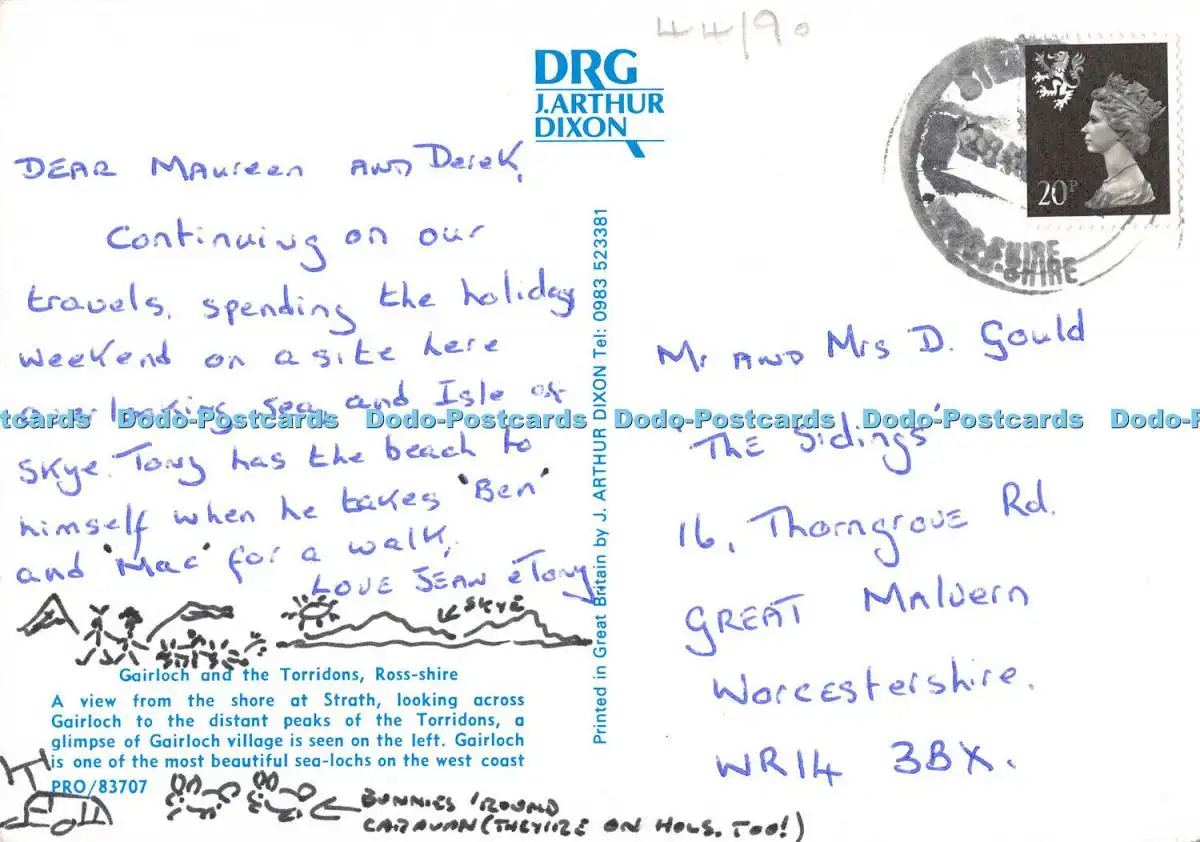 44/90
DRG
J.ARTHUR
DIXON
20P
SHIRE
SS-SHIRE
DEAR MAUREEN AND DEREK,
Continuing on our
travels, spending the holiday
weekend on a site here
overlooking sea, and Isle of
Skye. Tony has the beach to
himself when he takes 'Ben'
and 'Mac' for a walk,
LOVE JEAN & Tony
SKYE
Gairloch and the Torridons, Ross-shire
A view from the shore at Strath, looking across
Gairloch to the distant peaks of the Torridons, a
glimpse of Gairloch village is seen on the left. Gairloch
is one of the most beautiful sea-lochs on the west coast
PRO/83707
BUNNIES 'ROUND
CARAVAN (THEY'RE ON HOLS. TOO!)
Printed in Great Britain by J. ARTHUR DIXON Tel: 0983 523381
Mr AND Mrs D. Gould
'THE Sidings'
16, Thorngrove Rd.
GREAT Malvern
Worcestershire.
WR14 3BX.
Dodo-Postcards Dodo-Postcards Dodo-Postcards Dodo-Postcards